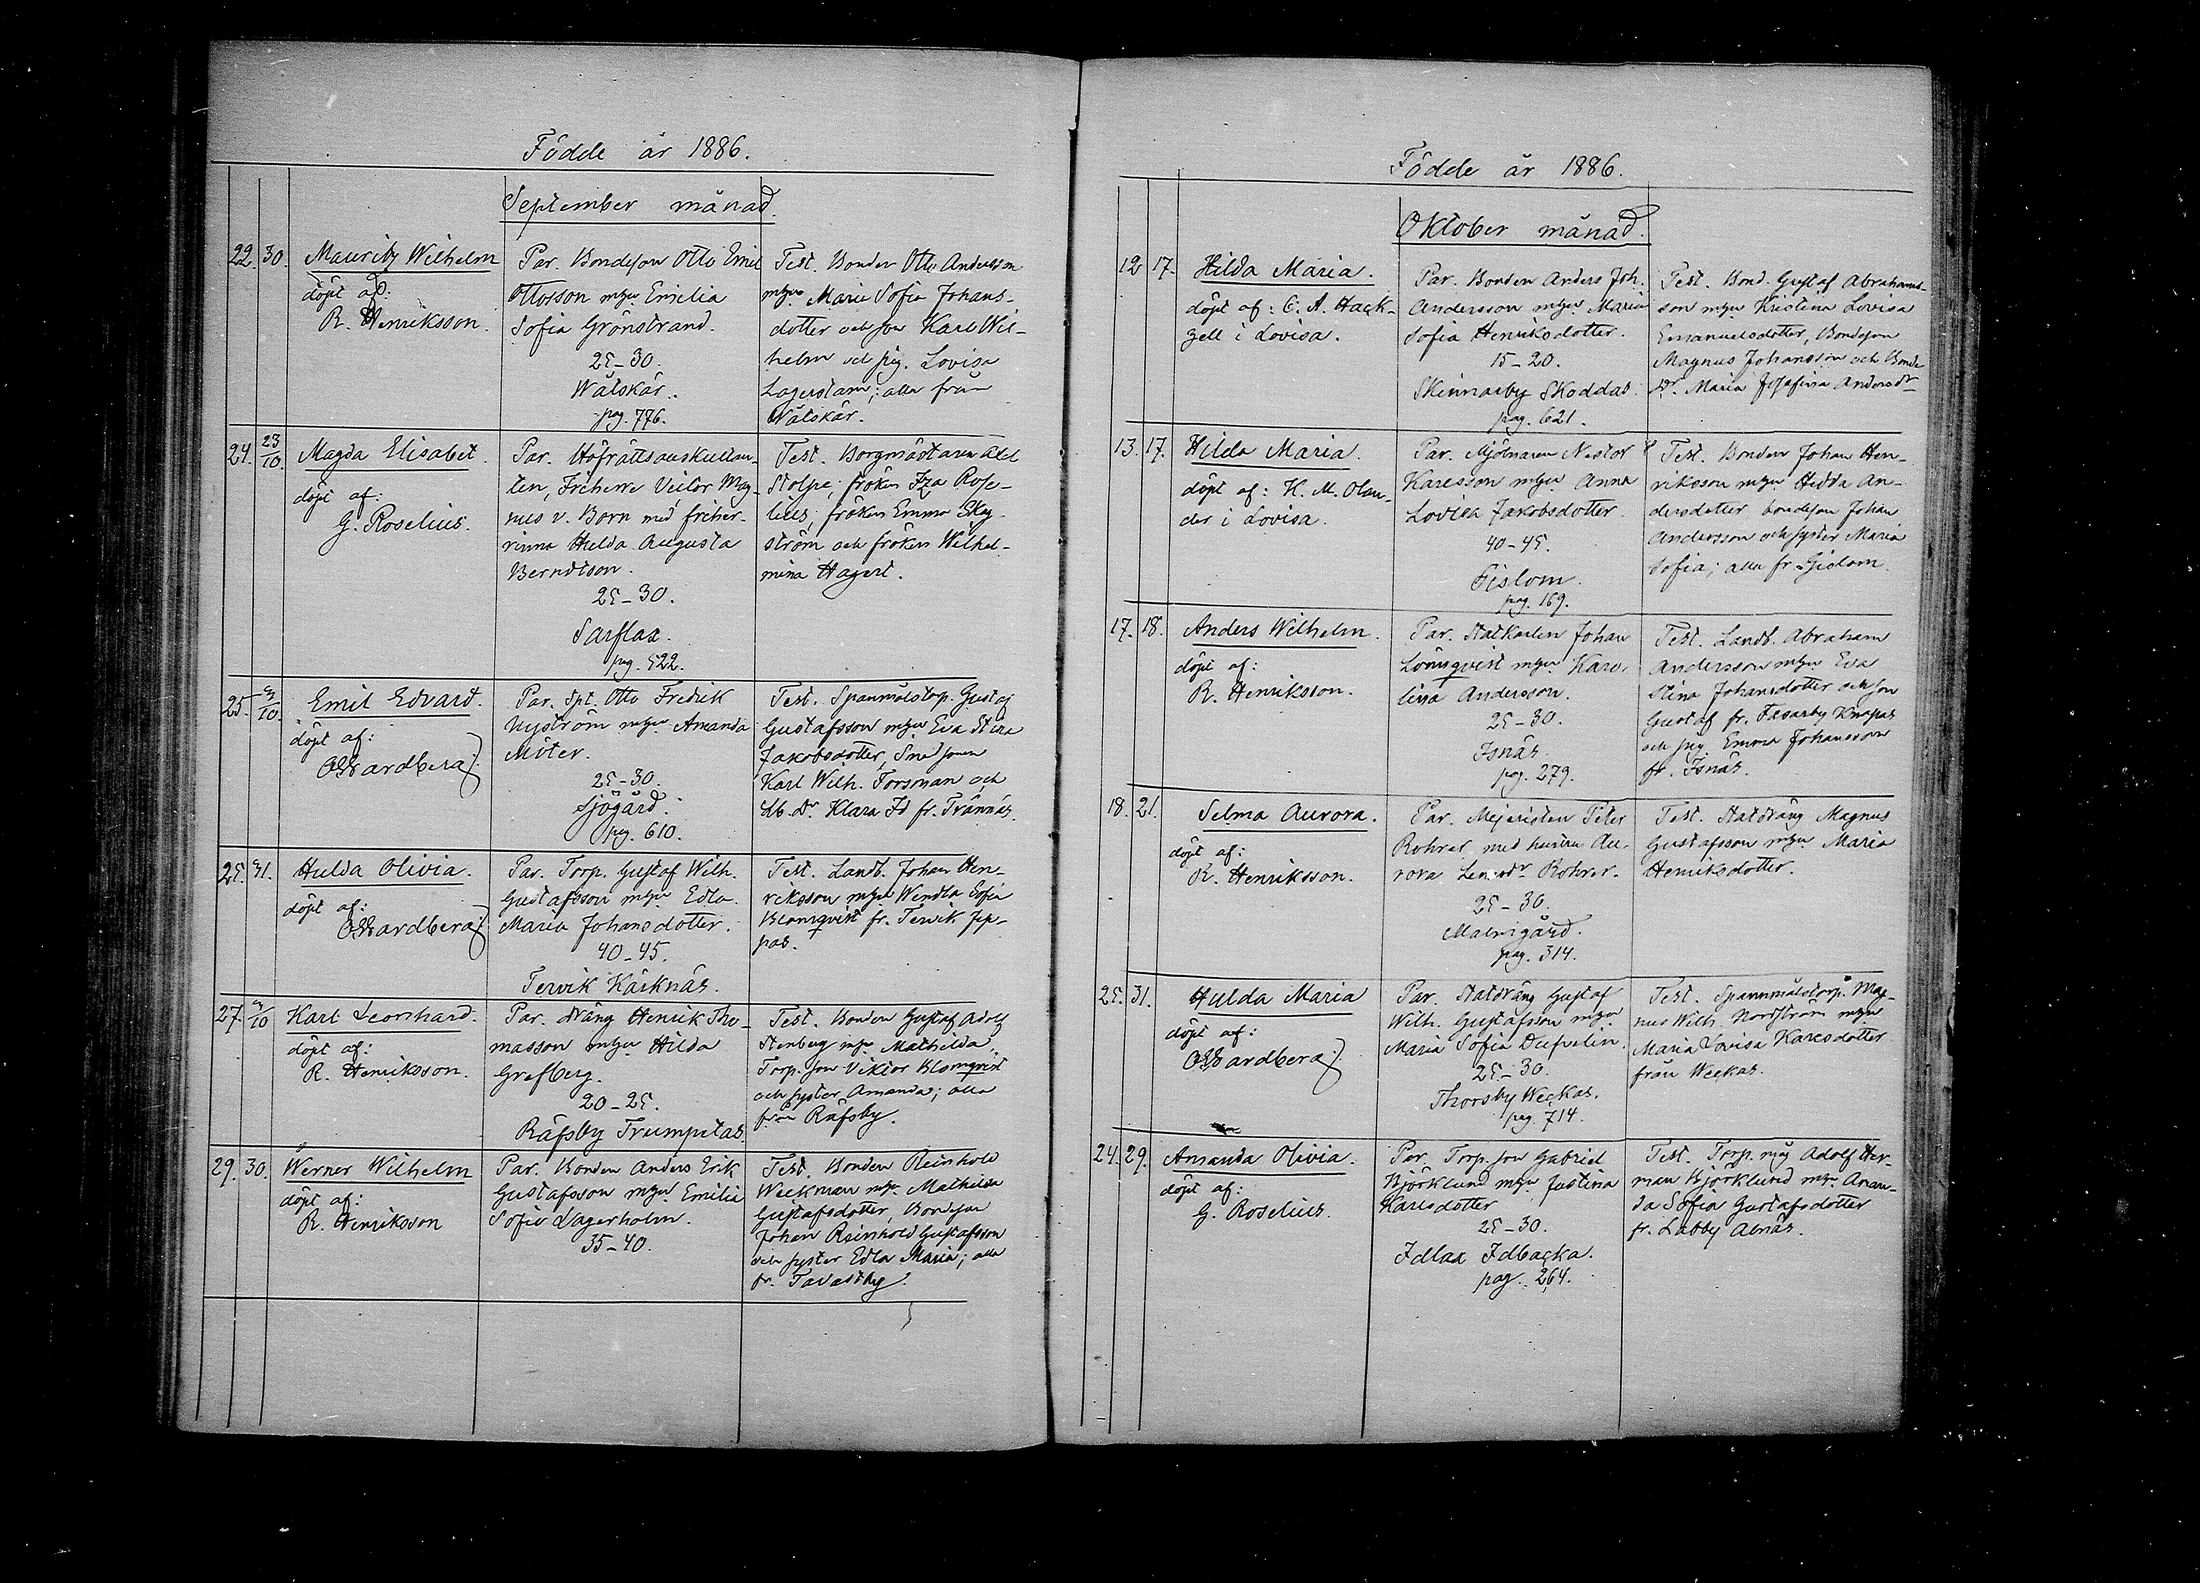 Födde år 1886.
September månad.
22. 30. Mauritz Wilhelm
döpt af:
R. Henriksson.
Par. Bondeson Otto Emil
Ottosson m hu Emilia
Sofia Grönstrand.
25-30.
Wätskär.
pag. 776.
Test. Bonden Otto Andersson
m hu Maria Sofia Johans-
dotter och son Karl Wil-
helm och pig. Lovisa
Lagerstam; alla från
Wätskär.
24. 23/10. Magda Elisabet.
döpt af:
G. Roselius.
Par. Hofrättsauskultan-
ten, Friherre Victor Mag-
nus v. Born med friher-
rinna Hulda Augusta
Berndtson.
25-30.
Sarflax.
pag. 522.
Test. Borgmästaren Axel
Stolpe, fröken Iza Rose-
lius, fröken Emma
ström och fröken Wilhel-
mina Hagert.
25. 3/10. Emil Edvard.
döpt af:
Par. Spt. Otto Fredrik
Nyström m hu Amanda
Möter.
25-30.
Sjögård.
pag. 610.
Test. Spanmålstorp. Gustaf
Gustafsson m hu Eva Stina
Jakobsdotter, Smedsonen
Karl Wilh. Forsman och
Lb. dr Klara Id fr. Trännäs.
25. 31. Hulda Olivia.
döpt af:
Par. Torp. Gustaf Wilh.
Gustafsson m hu Edla
Maria Johansdotter.
40-45.
Tervik Kärknäs.
Test. Landb. Johan Hen-
riksson m hu Wendla Sofia
Blomqvist fr. Tervik Jep-
pas.
27. 3/10 Karl Leonhard.
döpt af:
R. Henriksson.
Par. dräng Henrik Tho-
masson m hu Hilda
Grefberg.
20-25.
Räfsby Trumpetas
Test. Bonden Gustaf Adolf
Stenberg m hu Mathilda
Torp. son Viktor Blomqvist
och syster Amanda; alla
från Räfsby.
29. 30. Werner Wilhelm
döpt af:
R. Henriksson
Par. Bonden Anders Erik
Gustafsson m hu Emilia
Sofia Lagerholm.
35-40.
Test. Bonden Reinhold
Weckman m hu Mathilda
Gustafsdotter, Bondeson
Johan Reinhold Gustafsson
och syster Edla Maria; alla
fr. Tavastby.
Födde år 1886.
Oktober månad.
12 17. Hilda Maria.
döpt af: C. A. Hack-
zell i Lovisa.
Par. Bonden Anders Joh.
Andersson m hu Maria
Sofia Henriksdotter.
15-20.
Skinnarby Skoddas.
pag. 621.
Test. Bond. Gustaf Abrahams-
son m hu Kristina Lovisa
Emanuelsdotter, Bondeson
Magnus Johansson och Bonde
dr. Maria Josefina Andersdr
13. 17. Hilda Maria.
döpt af: K. M. Olan-
der i Lovisa.
Par. Mjölnaren Nestor
Karlsson m hu Anna
Lovisa Jakobsdotter
40-45.
Gislom.
pag. 169.
Test. Bonden Johan Hen-
riksson m hu Hedda An-
dersdotter bondeson Johan
Andersson och syster Maria
Sofia; alla fr. Gislom.
17. 18. Anders Wilhelm.
döpt af:
R. Henriksson.
Par. Statkarlen Johan
Lönnqvist m hu Karo-
lina Andersson.
25-30.
Isnäs.
pag. 279.
Test. Landb. Abraham
Andersson m hu Eva
Stina Johansdotter och son
Gustaf fr. Fasarby Knapas
och pig. Emma Johansson
fr. Isnäs.
18. 21. Selma Aurora.
döpt af:
R. Henriksson.
Par. Mejeristen Peter
Rohrer med hustru Au-
rora Rohrer.
25-30.
Malmgård.
pag. 314.
Test. Statdräng Magnus
Gustafsson m hu Maria
Henriksdotter.
25. 31. Hulda Maria
döpt af:
Par. Statdräng Gustaf
Wilh. Gustafsson m hu
Maria Sofia Dufvelin.
25-30.
Thorsby Weckas.
pag. 714.
Test. Spannmålstorp. Mag-
nus Wilh. Nordström m hu
Maria Lovisa Karlsdotter
från Weckas.
24. 29. Amanda Olivia.
döpt af:
G. Roselius.
Par. Torp. son Gabriel
Björklund m hu Justina
Karlsdotter
25-30.
Idlax Idbacka.
pag. 264.
Test. Torp. Adolf Her-
man Björklund m hu Aman-
da Sofia Gustafsdotter
fr. Labby Alnäs.